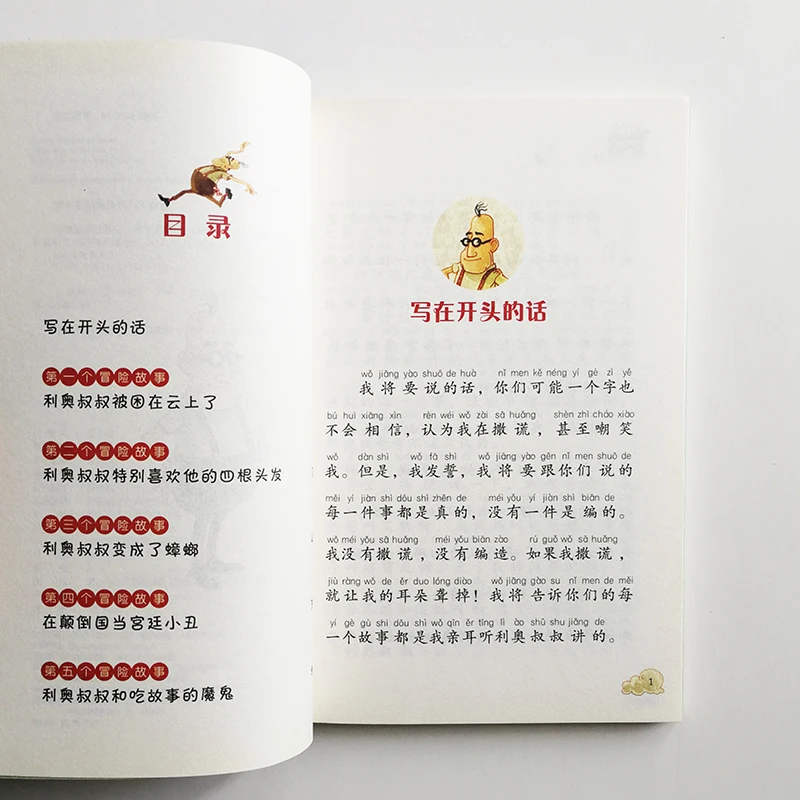 目录
写在开头的话
第一个冒险故事
利奥叔叔被困在云上了
第二个冒险故事
利奥叔叔特别喜欢他的四根头发
第三个冒险故事
利奥叔叔变成了蟑螂
第四个冒险故事
在颠倒国当宫廷小丑
第五个冒险故事
利奥叔叔和吃故事的魔鬼
写在开头的话
wǒ jiāng yào shuō de huà nǐ men kě néng yí gè zì yě
我将要说的话，你们可能一个字也
bú huì xiāng xìn rèn wéi wǒ zài sā huǎng shèn zhì cháo xiào
不会相信，认为我在撒谎，甚至嘲笑
wǒ dàn shì wǒ fā shì wǒ jiāng yào gēn nǐ men shuō de
我。但是，我发誓，我将要跟你们说的
měi yí jiàn shì dōu shì zhēn de méi yǒu yí jiàn shì biān de
每一件事都是真的，没有一件是编的。
wǒ méi yǒu sā huǎng méi yǒu biān zào rú guǒ wǒ sā huǎng
我没有撒谎，没有编造。如果我撒谎，
jiù ràng wǒ de ěr duo lóng diào wǒ jiāng gào su nǐ men de měi
就让我的耳朵聋掉！我将告诉你们的每
yí gè gù shi dōu shì wǒ qīn ěr tīng lì ào shū shu jiǎng de
一个故事都是我亲耳听利奥叔叔讲的。
1